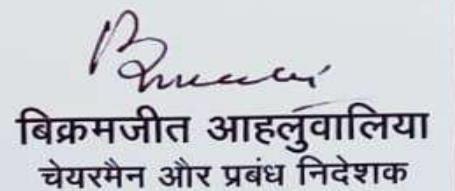 बिक्रमजीत आहलुवालिया
चेयरमैन और प्रबंध निदेशक